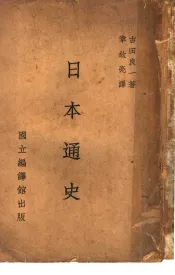 吉田良一著
章欽亮譯
日本通史
國立編譯館出版